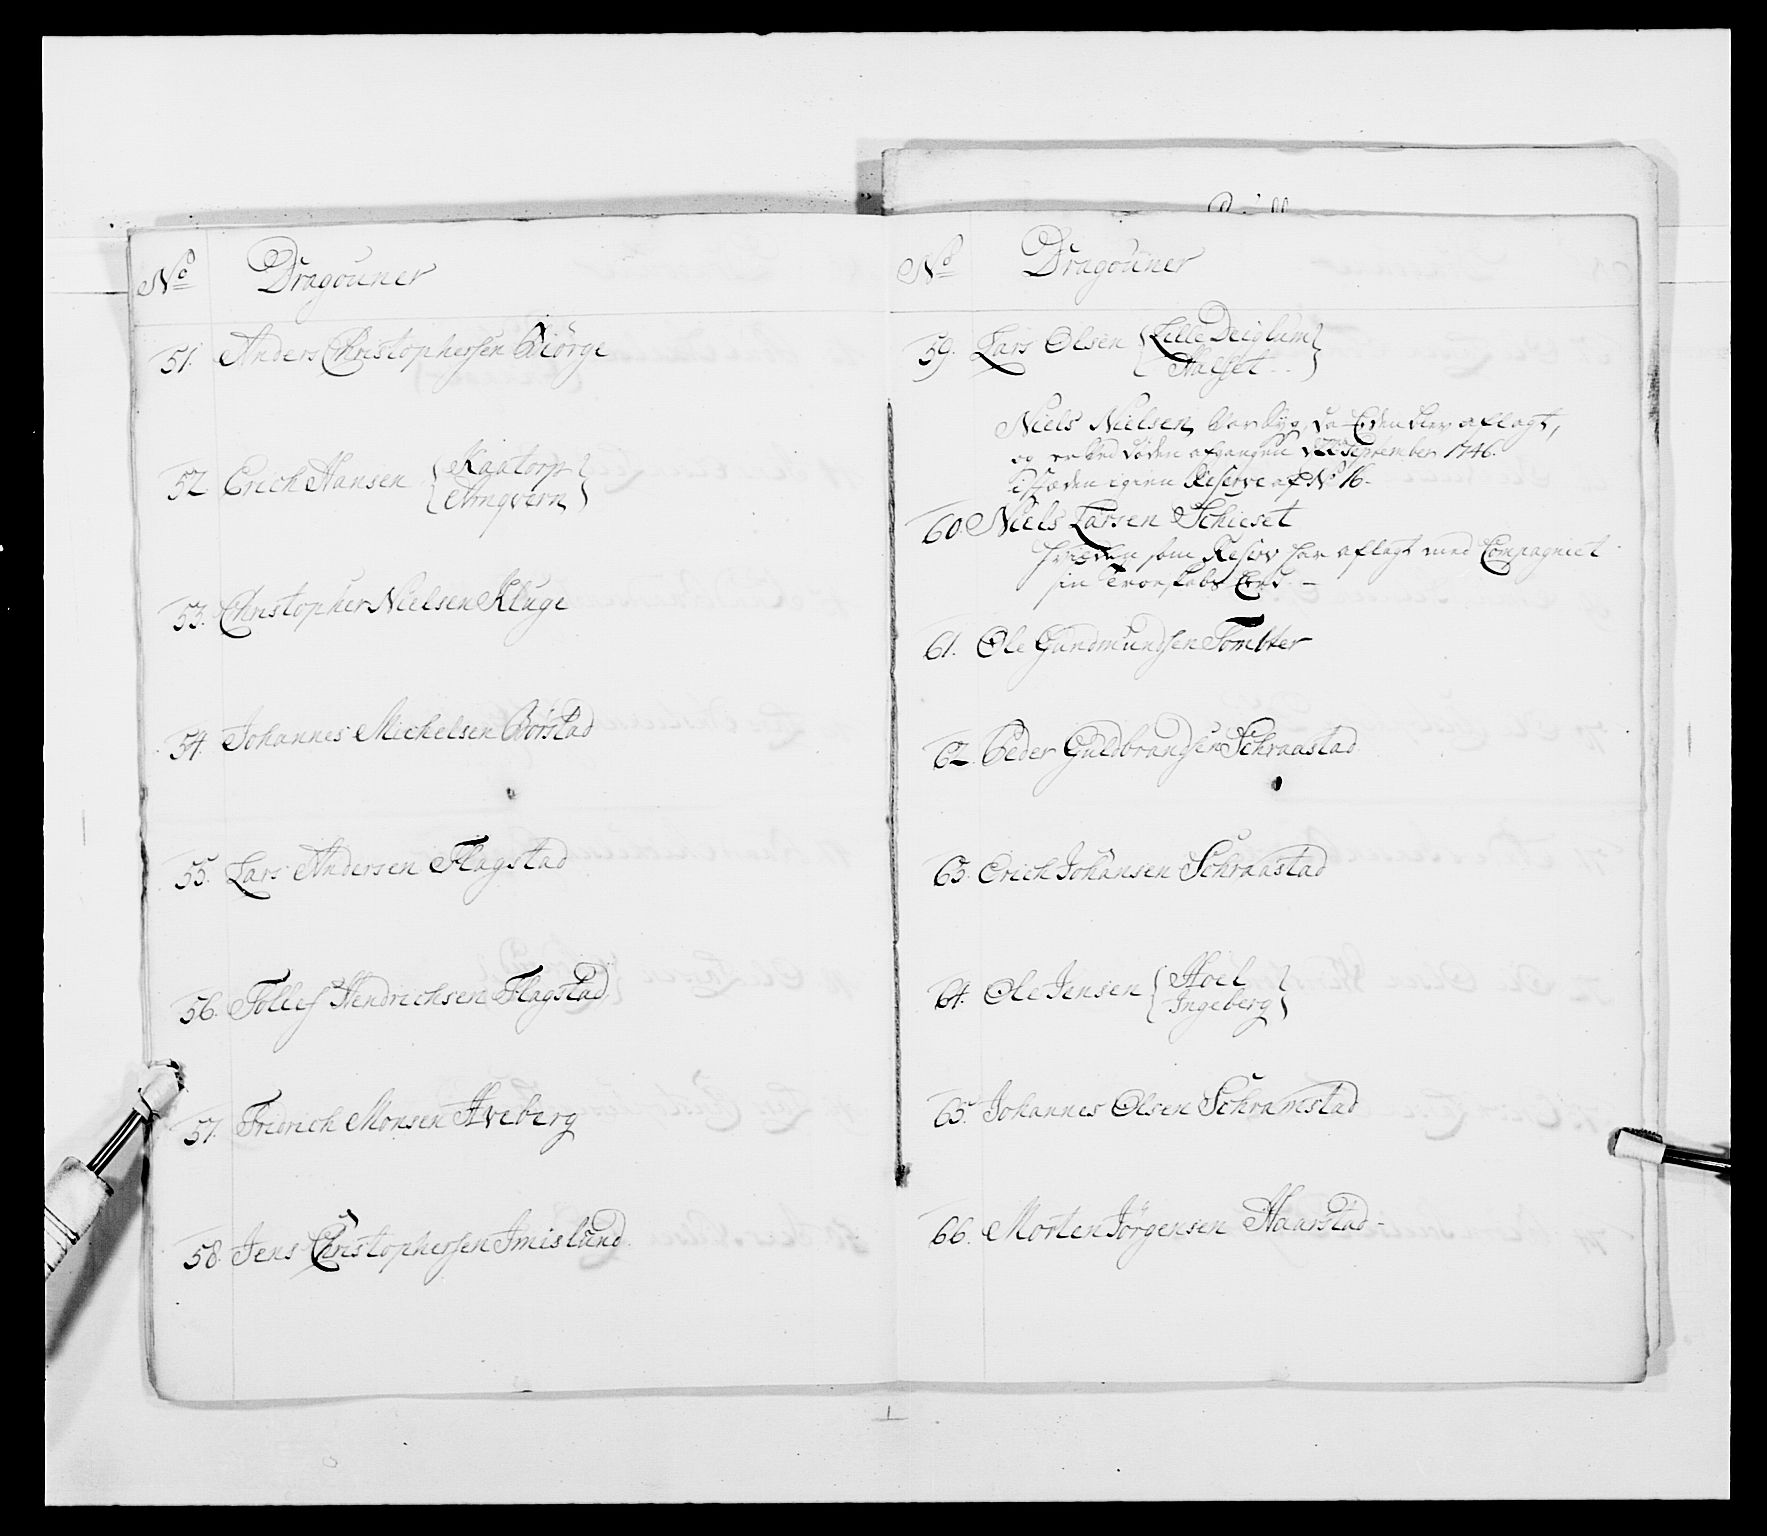 No Dragouner
51. Anders Christophersen Biörge
52 Erich Hansen { Kaatorp
Amqvern }
53. Christopher Nielsen Kluge
54. Johannes Michelsen Börstad
55. Lars Andersen Flagstad
56. Tollef Hendrichsen Flagstad
57. Fridrich Monsen Hveberg
58. Jens Christophersen Imislund
No Dragouner
59. Lars Olsen { Lille Deiglum
Halset }
Niels Nielsen, Var Syg, da Eden blev aflagt,
og er ved Döden afgangen September 1746.
i Stæden igien Reserve af No 16.
60. Niels Larsen Schieset
hvilken som Reserv har aflagt med Compagniet
sin Troeskabs Eed. —
61. Ole Gundmundsen Tombter
62. Peder Guldbrandsen Schraastad
63. Erich Johansen Schraastad
64. Ole Jensen { Hoel
Ingeberg }
65. Johannes Olsen Schraastad
66. Morten Jörgensen Haarstad -